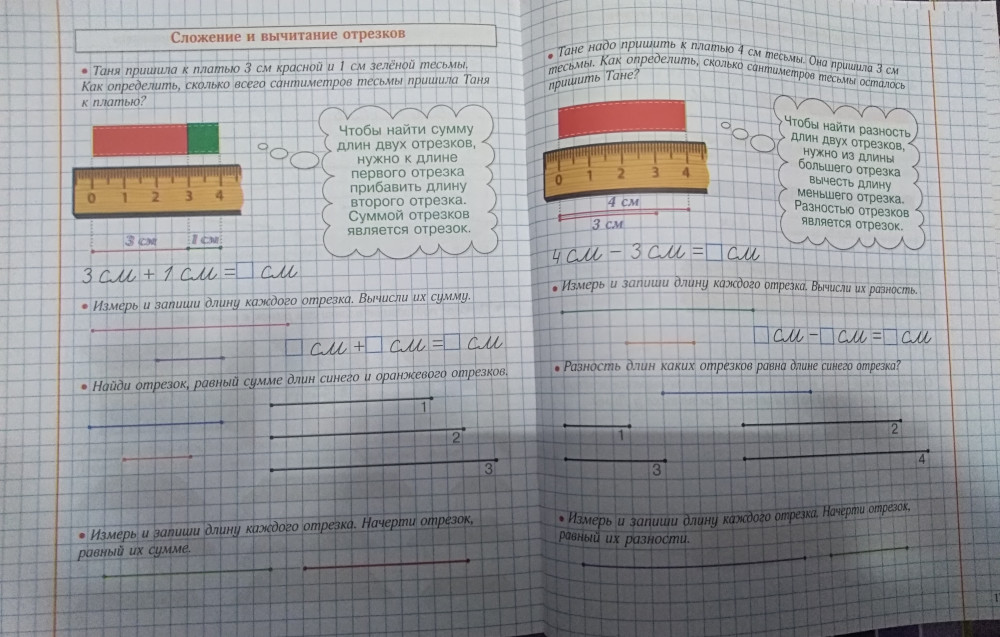 Сложение и вычитание отрезков
• Таня пришила к платью 3 см красной и 1 см зелёной тесьмы.
Как определить, сколько всего сантиметров тесьмы пришила Таня
к платью?
Чтобы найти сумму
длин двух отрезков,
нужно к длине
первого отрезка
прибавить длину
второго отрезка.
Суммой отрезков
является отрезок.
0 1 2 3 4
3 см 1 см
3 см + 1 см = □ см
• Измерь и запиши длину каждого отрезка. Вычисли их сумму.
□ см + □ см = □ см
• Найди отрезок, равный сумме длин синего и оранжевого отрезков.
1
2
3
• Измерь и запиши длину каждого отрезка. Начерти отрезок,
равный их сумме.
• Тане надо пришить к платью 4 см тесьмы. Она пришила 3 см
тесьмы. Как определить, сколько сантиметров тесьмы осталось
пришить Тане?
Чтобы найти разность
длин двух отрезков,
нужно из длины
большего отрезка
вычесть длину
меньшего отрезка.
Разностью отрезков
является отрезок.
0 1 2 3 4
4 см
3 см
4 см − 3 см = □ см
• Измерь и запиши длину каждого отрезка. Вычисли их разность.
□ см − □ см = □ см
• Разность длин каких отрезков равна длине синего отрезка?
1 2
3 4
• Измерь и запиши длину каждого отрезка. Начерти отрезок,
равный их разности.